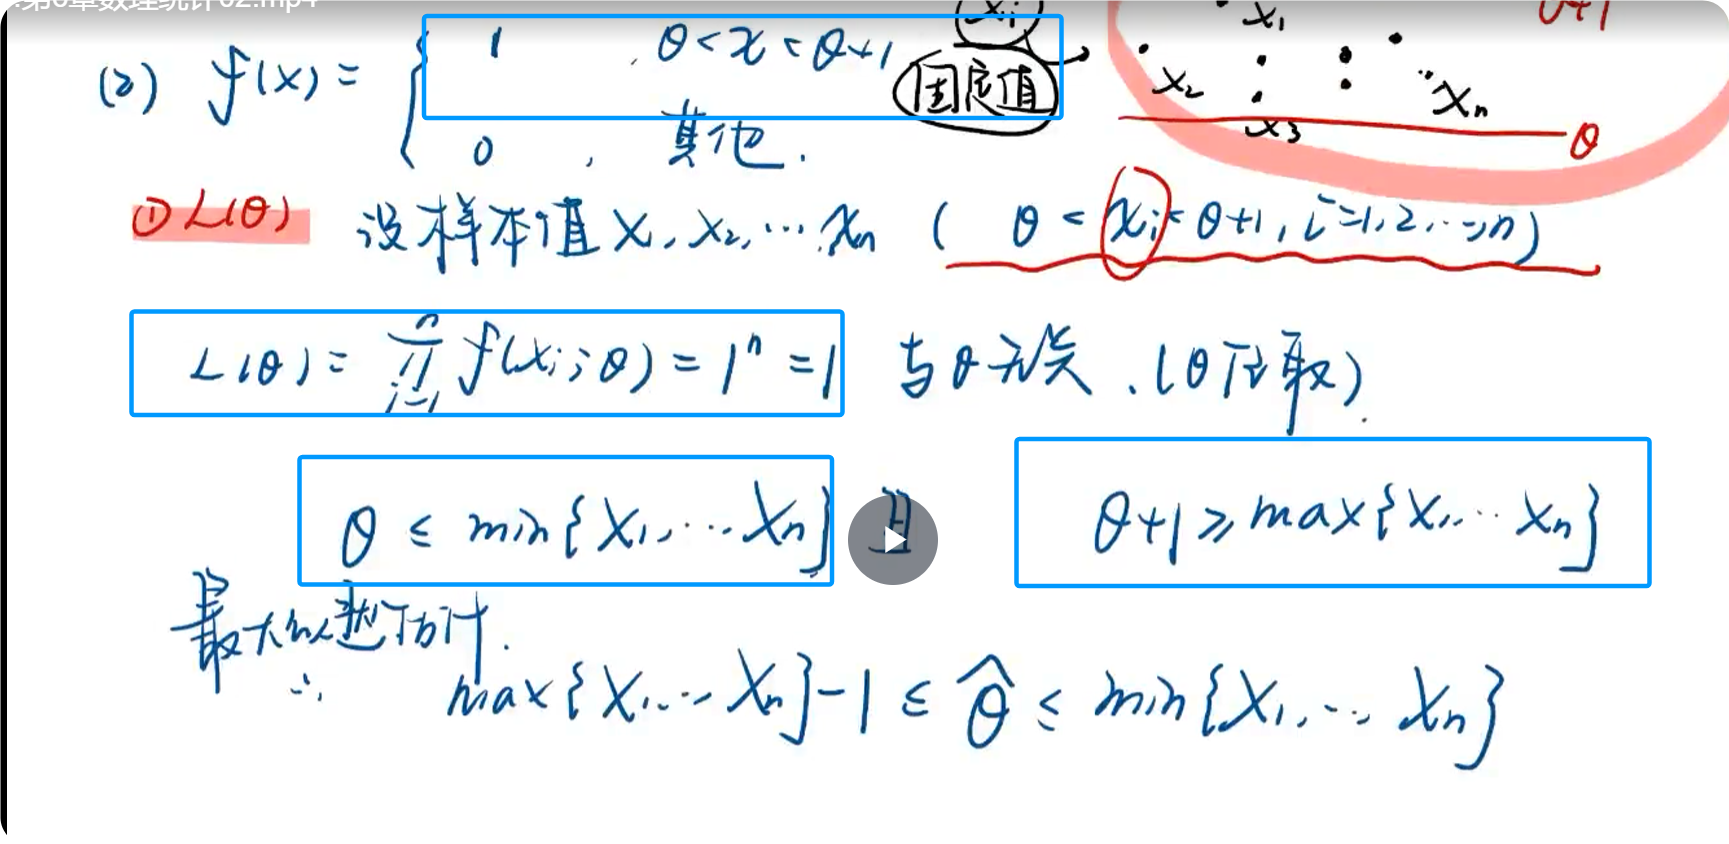 第6章数理统计02.mp4
(2) f(x) = { 1 , θ < x < θ+1
0 , 其他.
xi
固定值
x1
x2
x3
xn
θ+1
θ
① L(θ) 设样本值 x1, x2, … xn ( θ < xi < θ+1, i=1,2,…,n)
L(θ) = ∏_{i=1}^{n} f(xi; θ) = 1^n = 1 与θ无关. (θ任取).
θ ≤ min{x1, … xn} 且 θ+1 ≥ max{x1, … xn}
最大似然估计.
∴ max{X1, … Xn} - 1 ≤ θ̂ ≤ min{X1, … Xn}